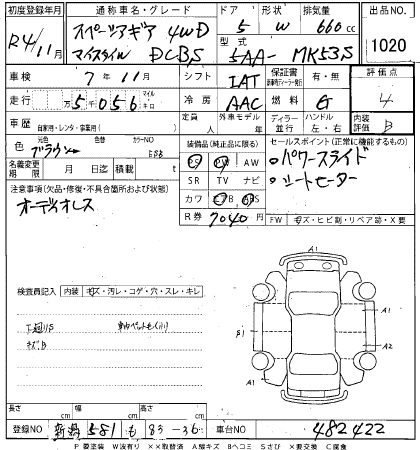 初度登録年月 通称車名・グレード ドア 形状 排気量 出品NO.
R4/11月 スペーシアギア 4WD 5 W 660cc
マイスタイル DCBS 型式 5AA- MK53S 1020
車検 7年11月 シフト IAT 保証書 有・無 評価点
走行 万5056 マイル キロ 冷房 AAC 燃料 G 4
車歴 自家用・レンタ・事業用( ) 定員 人 外車モデル 年 ディーラー 並行 ハンドル 左・右 内装評価 B
色 元色 ブラウン 色替 カラーNO 装備品(純正品に限る) セールスポイント(正常に機能するもの)
PS PW AW ・パワースライド
名義変更期限 月 日迄 積載 t SR TV ナビ ・シートヒーター
注意事項(欠品・修復・不具合箇所および状態) カワ エアB ABS
オーディオレス R券 7040円 FW キズ・ヒビ割・リペア跡・X要
検査員記入 内装 キズ・汚レ・コゲ・穴・スレ・キレ
A1
下廻りS
キズB
A1
A1
A2
A1
長さ cm 幅 cm 高さ cm
登録NO 新潟 581 も 83-36 車台NO 482422
P要塗装 W波有り XX取替済 A線キズ Bヘコミ Sさび X要交換 C腐食